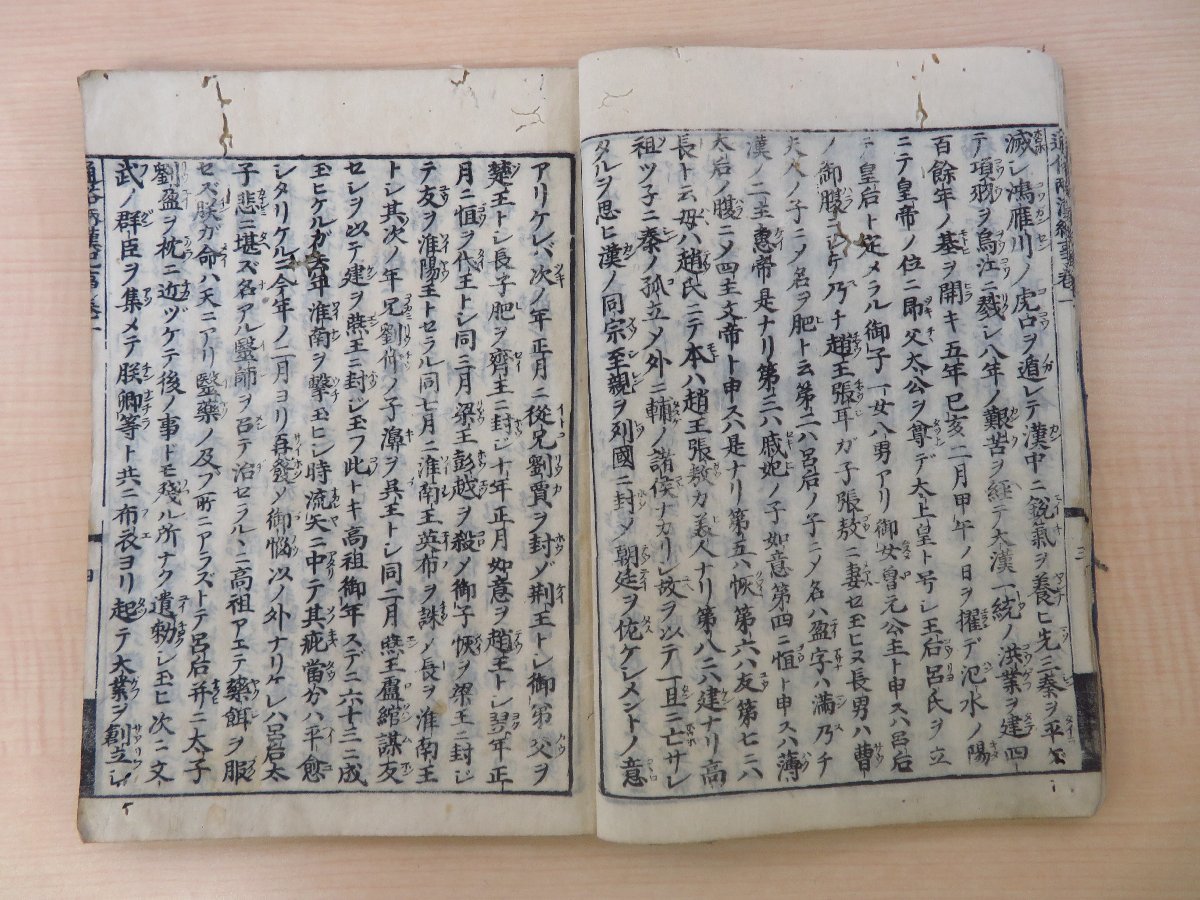 滅シ鴻雁川ノ虎口ヲ遁レテ漢中ニ鋭氣ヲ養ヒ先三秦ヲ平ゲ
テ項羽ヲ烏江ニ戮シ八年ノ艱苦ヲ経テ大漢一統ノ洪業ヲ建四
百餘年ノ基ヲ開キ五年己亥二月甲午ノ日ヲ擢デ氾水ノ陽
ニテ皇帝ノ位ニ即父太公ヲ尊デ太上皇ト号シ王后呂氏ヲ立
テ皇后ト定メラル御子一女八男アリ御女魯元公主ト申スハ呂后
ノ御腹ニシテ乃チ趙王張耳ガ子張敖ニ妻セ玉ヒヌ長男ハ曹
夫人ノ子ニメ名ヲ肥ト云第二ハ呂后ノ子ニメ名ハ盈字ハ満乃チ
漢ノ二主惠帝是ナリ第三ハ戚妃ノ子如意第四ニ恒ト申スハ薄
太后ノ腹ニメ四主文帝ト申ス是ナリ第五ハ恢第六ハ友第七ハ
長ト云母ハ趙氏ニテ本ハ趙王張敖カ美人ナリ第八ニハ建ナリ高
祖ツ子ニ秦ノ孤立メ外ニ輔ノ諸侯ナカリシ故ヲ以テ一旦ニ亡サレ
タルヲ思ヒ漢ノ同宗至親ヲ列國ニ封メ朝廷ヲ佐ケシメントノ意
アリケレバ次ノ年正月ニ從兄劉賈ヲ封ゾ荆王トシ御弟父ヲ
楚王トシ長子肥ヲ齊王ニ封ジ十年正月如意ヲ趙王トシ翌年正
月ニ恒ヲ代王トシ同三月梁王彭越ヲ殺メ御子恢ヲ梁王ニ封ジ
テ友ヲ淮陽王トセラル同七月ニ淮南王英布ヲ誅メ長ヲ淮南王
トシ其次ノ年兄劉仲ノ子濞ヲ呉王トシ同二月燕王盧綰謀友
セシヲ以テ建ヲ燕王ニ封ジ玉フ此トキ高祖御年スデニ六十三ニ成
玉ヒケルカ去年淮南ヲ撃玉ヒシ時流矢ニ中テ其疵當分ハ平愈
シタリケルニ今年ノ二月ヨリ再發メ御惱以ノ外ナリケレハ呂后太
子悲ニ堪ズ名アル醫師ヲ召テ治セラルヽニ高祖アエテ藥餌ヲ服
セズ朕ガ命ハ天ニアリ醫藥ノ及ブ所ニアラズトテ呂后并ニ太子
劉盈ヲ枕ニ近ヅケテ後ノ事トモ殘ル所ナク遺勅シ玉ヒ次ニ文
武ノ群臣ヲ集メテ朕卿等ト共ニ布衣ヨリ起テ大業ヲ創立シ